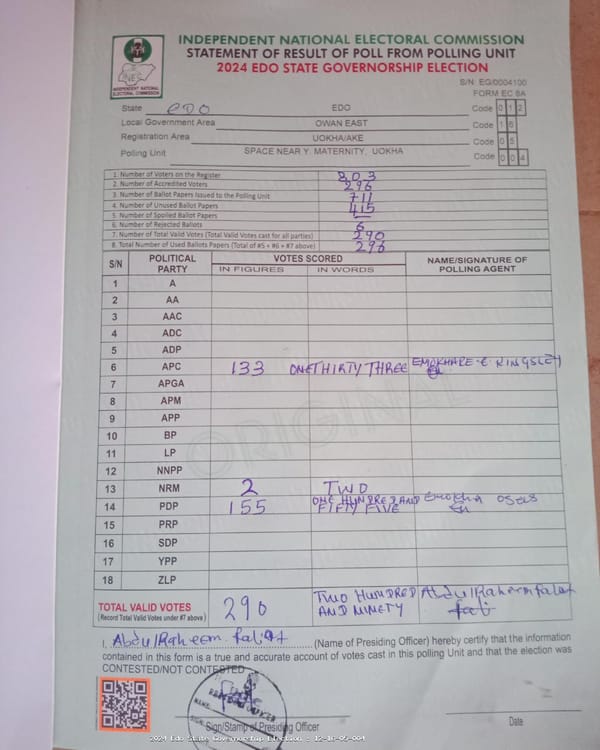 INDEPENDENT NATIONAL ELECTORAL COMMISSION
STATEMENT OF RESULT OF POLL FROM POLLING UNIT
2024 EDO STATE GOVERNORSHIP ELECTION
INEC
INDEPENDENT NATIONAL ELECTORAL COMMISSION
S/N EG/0004100
FORM EC 8A
State EDO EDO Code 0 1 2
Local Government Area OWAN EAST Code 1 6
Registration Area UOKHA/AKE Code 0 5
Polling Unit SPACE NEAR Y. MATERNITY, UOKHA Code 0 0 4
1. Number of Voters on the Register 803
2. Number of Accredited Voters 296
3. Number of Ballot Papers Issued to the Polling Unit 711
4. Number of Unused Ballot Papers 415
5. Number of Spoiled Ballot Papers —
6. Number of Rejected Ballots 6
7. Number of Total Valid Votes (Total Valid Votes cast for all parties) 290
8. Total Number of Used Ballots Papers (Total of #5 + #6 + #7 above) 296
S/N POLITICAL PARTY VOTES SCORED NAME/SIGNATURE OF POLLING AGENT
IN FIGURES IN WORDS
1 A
2 AA
3 AAC
4 ADC
5 ADP
6 APC 133 ONE THIRTY THREE EMOKHARE E KINGSLEY
7 APGA
8 APM
9 APP
10 BP
11 LP
12 NNPP
13 NRM 2 TWO
14 PDP 155 ONE HUNDRED AND FIFTY FIVE Emokha
15 PRP
16 SDP
17 YPP
18 ZLP
ORIGINAL
TOTAL VALID VOTES 290 TWO HUNDRED AND NINETY Abdul Raheem Falat
(Record Total Valid Votes under #7 above)
I, Abdul Raheem Falat (Name of Presiding Officer) hereby certify that the information
contained in this form is a true and accurate account of votes cast in this polling Unit and that the election was
CONTESTED/NOT CONTESTED
Sign/Stamp of Presiding Officer
Date
2024 Edo State Governorship Election - 12-16-05-004